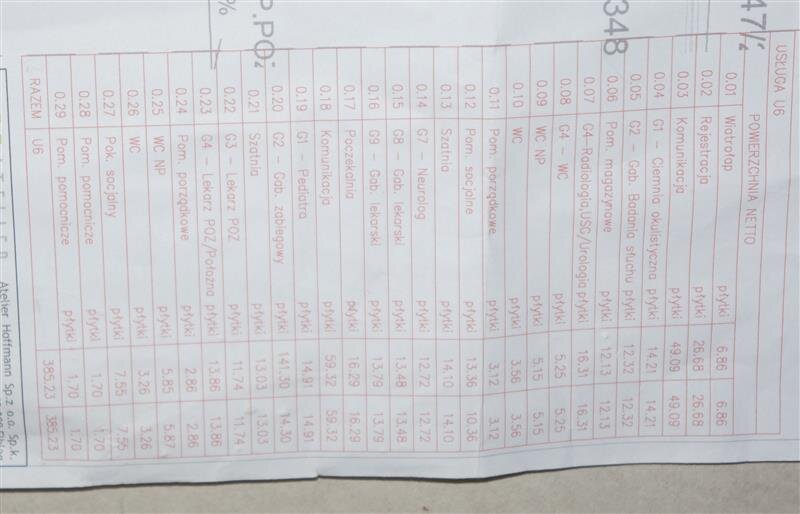 USŁUGA U6
POWIERZCHNIA NETTO
0.01 Wiatrołap płytki 6.86 6.86
0.02 Rejestracja płytki 26.68 26.68
0.03 Komunikacja płytki 49.09 49.09
0.04 G1 – Ciemnia okulistyczna płytki 14.21 14.21
0.05 G2 – Gab. Badania słuchu płytki 12.32 12.32
0.06 Pom. magazynowe płytki 12.13 12.13
0.07 G4-Radiologia,USG/Urologia płytki 16.31 16.31
0.08 G4 – WC płytki 5.25 5.25
0.09 WC NP płytki 5.15 5.15
0.10 WC płytki 3.56 3.56
0.11 Pom. porządkowe płytki 3.12 3.12
0.12 Pom. socjalne płytki 13.36 10.36
0.13 Szatnia płytki 14.10 14.10
0.14 G7 – Neurolog płytki 12.72 12.72
0.15 G8 – Gab. lekarski płytki 13.48 13.48
0.16 G9 – Gab. lekarski płytki 13.79 13.79
0.17 Poczekalnia płytki 16.29 16.29
0.18 Komunikacja płytki 59.32 59.32
0.19 G1 – Pediatra płytki 14.91 14.91
0.20 G2 – Gab. zabiegowy płytki 141.30 14.30
0.21 Szatnia płytki 13.03 13.03
0.22 G3 – Lekarz POZ płytki 11.74 11.74
0.23 G4 – Lekarz POZ/Położna płytki 13.86 13.86
0.24 Pom. porządkowe płytki 2.86 2.86
0.25 WC NP płytki 5.85 5.87
0.26 WC płytki 3.26 3.26
0.27 Pok. socjalny płytki 7.55 7.55
0.28 Pom. pomocnicze płytki 1.70 1.70
0.29 Pom. pomocnicze płytki 1.70 1.70
RAZEM U6 385.23 385.23
Atelier Hoffmann Sp.z o.o. Sp.k.
348
%